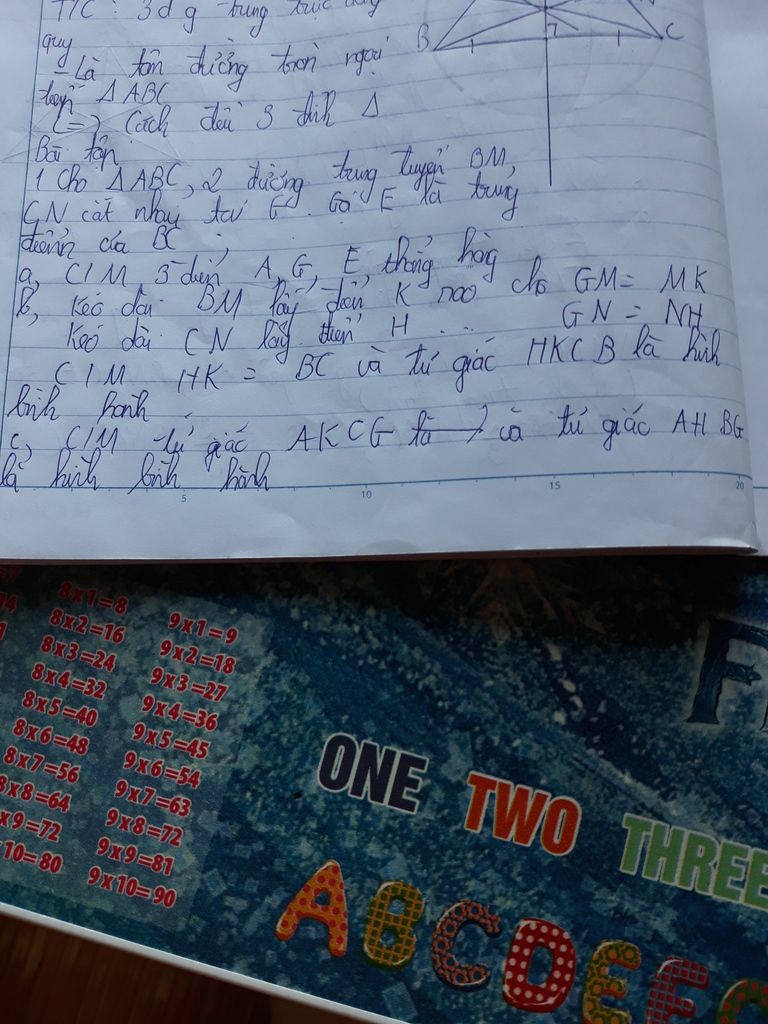 T/C : 3 đ g trung trực đồng
quy
B C
- Là tâm đường tròn ngoại
tiếp Δ ABC
(=) Cách đều 3 đỉnh Δ
Bài tập
1 Cho ΔABC, 2 đường trung tuyến BM,
CN cắt nhau tại G. Gọi E là trung
điểm của BC
a, C/M 3 điểm A, G, E thẳng hàng
b, Kéo dài BM lấy điểm K sao cho GM = MK
Kéo dài CN lấy điểm H ... GN = NH
C/M HK = BC và tứ giác HKCB là hình
bình hành
c, C/M tứ giác AKCG là và tứ giác AHBG
là hình bình hành
5 10 15 20
8x1=8 9x1=9
8x2=16 9x2=18
8x3=24 9x3=27
8x4=32 9x4=36
8x5=40 9x5=45
8x6=48 9x6=54
8x7=56 9x7=63
8x8=64 9x8=72
x9=72 9x9=81
10=80 9x10=90
ONE TWO THREE
ABCDEF